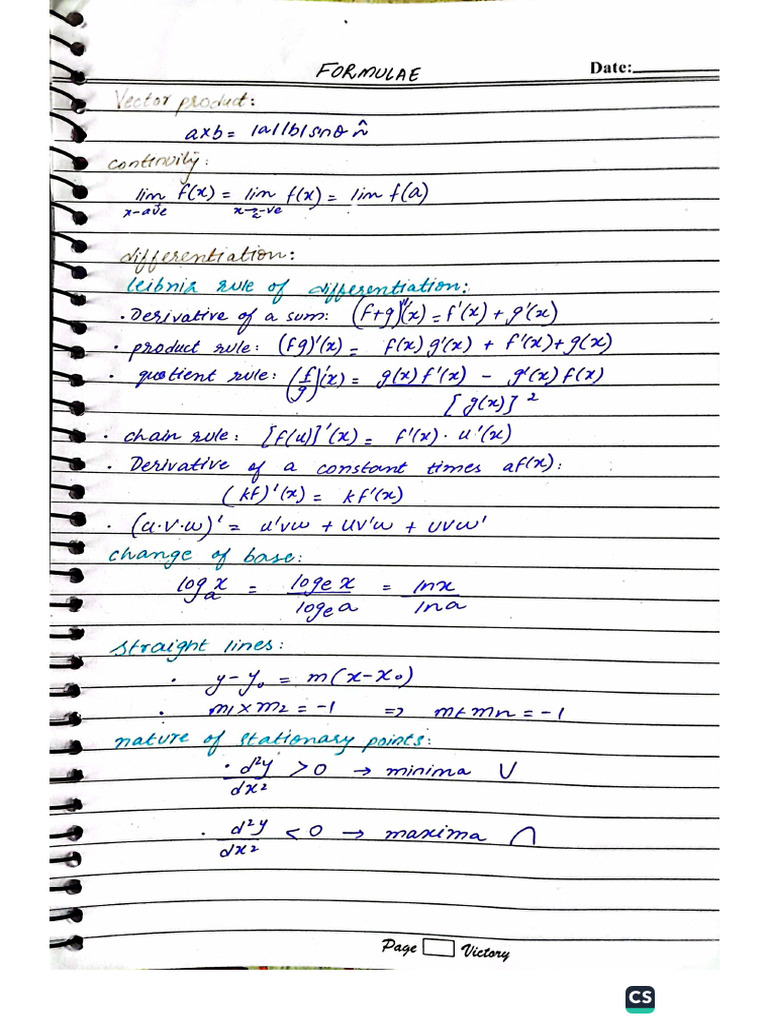 FORMULAE
Date:
Vector product:
a×b = |a||b|sinθ n̂
continuity:
lim f(x) = lim f(x) = lim f(a)
x→a⁺ve x→2-ve
differentiation:
leibniz rule of differentiation:
• Derivative of a sum: (f+g)'(x) = f'(x) + g'(x)
• product rule: (fg)'(x) = f(x) g'(x) + f'(x)+g(x)
• quotient rule: (f/g)'(x) = g(x) f'(x) - g'(x) f(x)
[g(x)]²
• chain rule: [f(u)]'(x) = f'(x) · u'(x)
• Derivative of a constant times af(x):
(kf)'(x) = kf'(x)
• (u·v·w)' = u'vw + uv'w + uvw'
change of base:
logₐx = logₑx / logₑa = lnx / lna
straight lines:
• y-y₀ = m(x-x₀)
• m₁×m₂ = -1 => mt mn = -1
nature of stationary points:
• d²y/dx² > 0 → minima ∪
• d²y/dx² < 0 → maxima ∩
Page Victory
CS